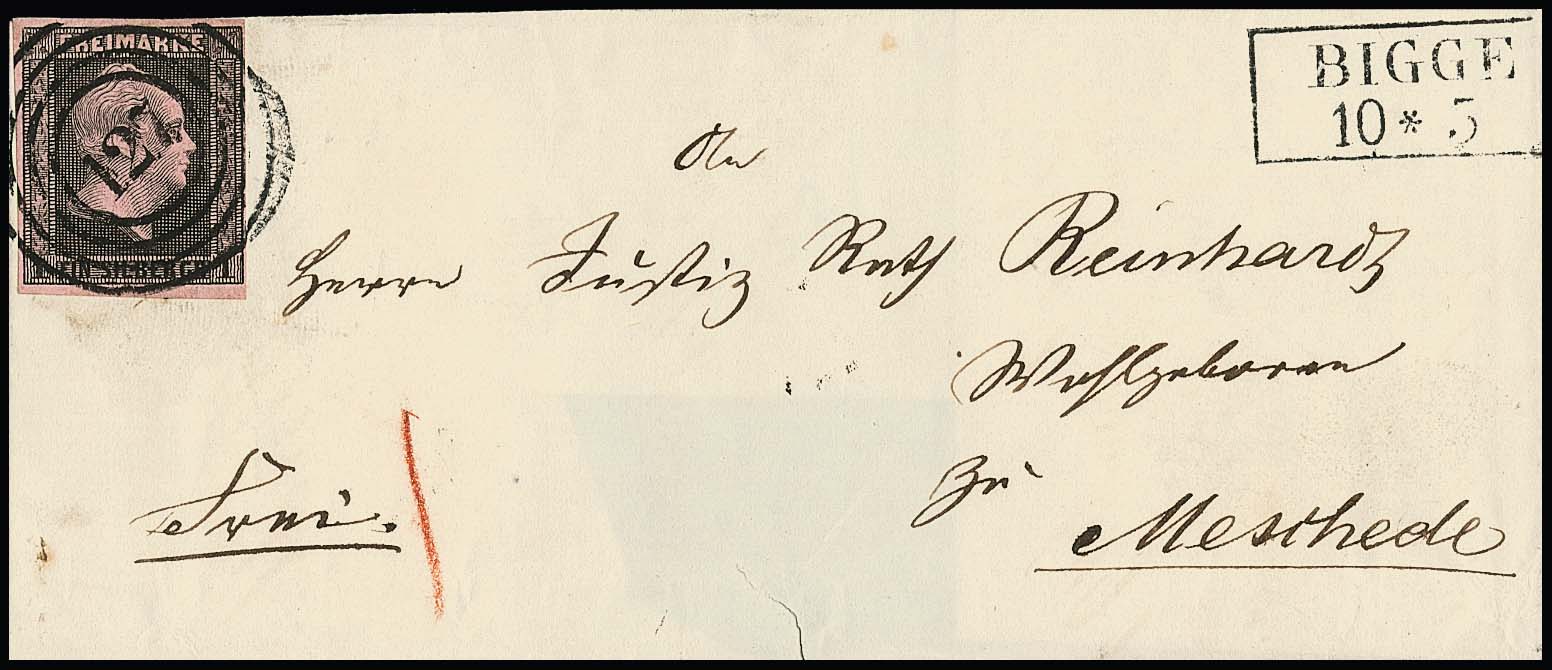 FREIMARKE
127
EIN SILBERGR.
BIGGE
10 * 5
An
Herrn Justiz Rath Reinhardt
Wohlgeboren
Frei.
zu
Meschede